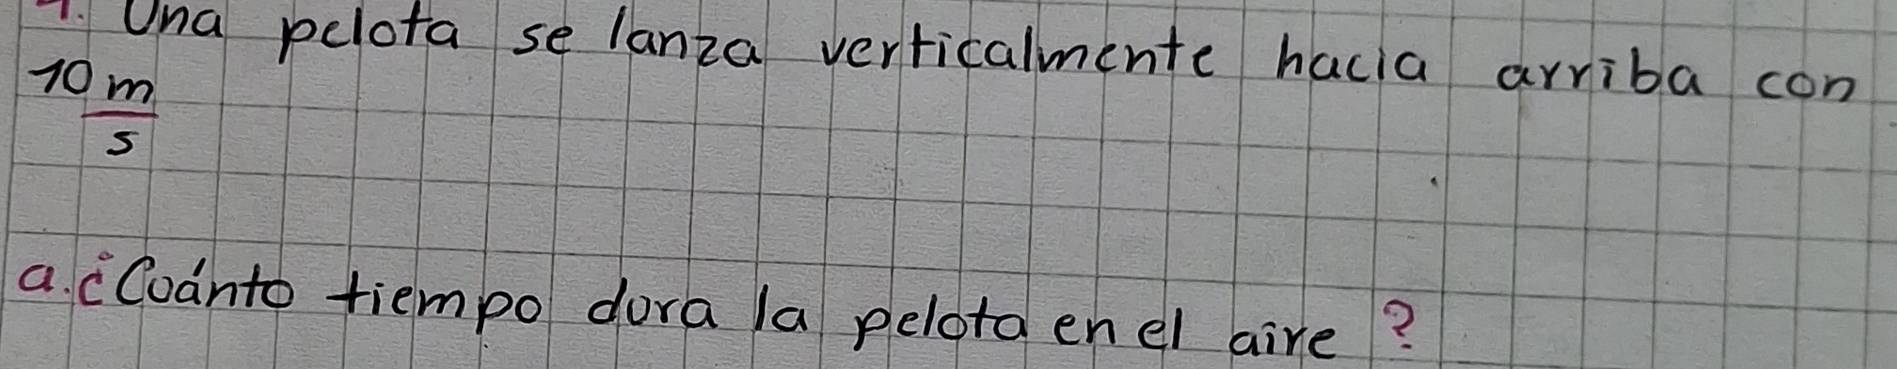 1. Una pelota se lanza verticalmente hacia arriba con
10 m
s
a. ¿Cuánto tiempo dura la pelota en el aire?